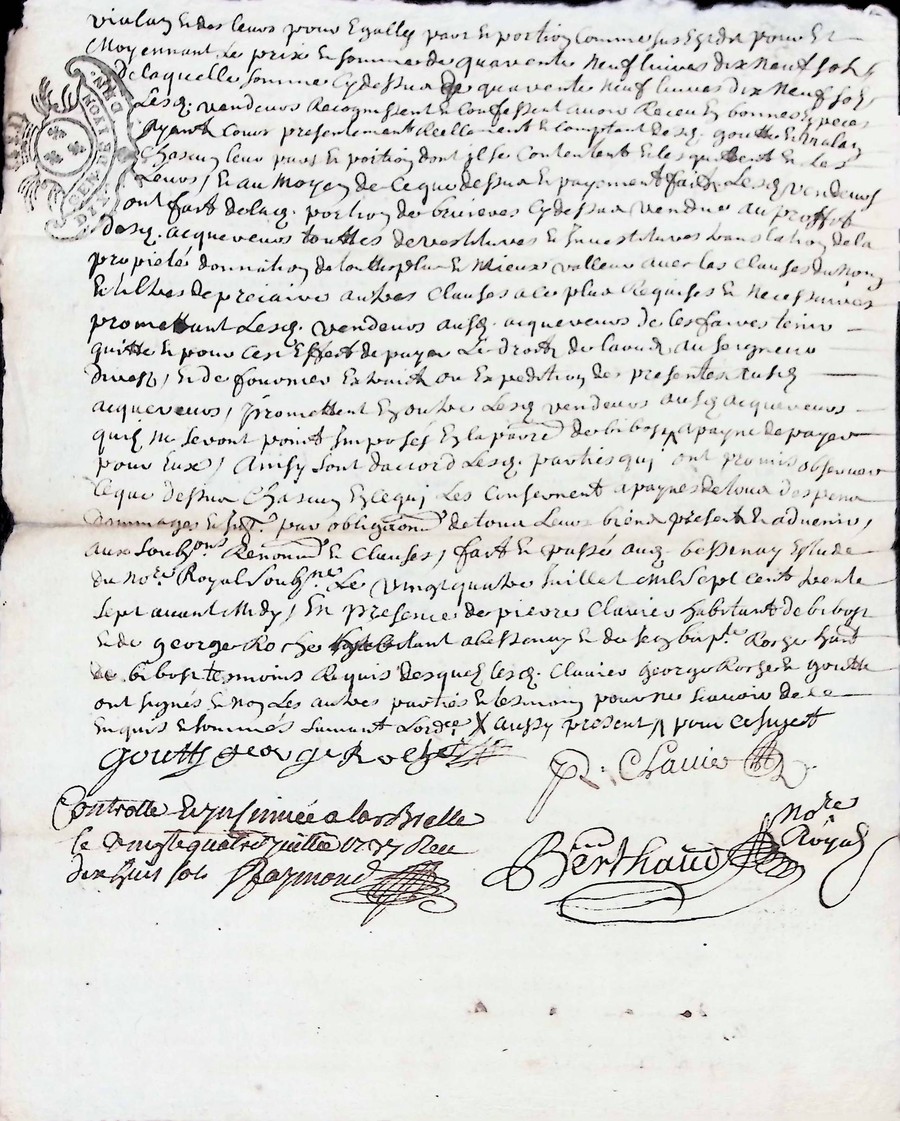 vialay et des leurs pour Egalle part et portion comme sus Est dit pour Et
Moyennant Le prix Et somme de quarente Neuf livres dix Neuf sols
de laquelle somme Cydessus de quarente Neuf livres dix Neuf sols
Lesq. vendeurs Recognoissent et Confessent avoir Receu En bonnes Espèces
ayant cour présentement Réellement et comptant desq. goutte Et vialay
Chascun leur part et portion dont il se Contentent Et les quittent Et Les
Leurs, Et au Moyen de Ceque dessus et payement fait Lesq. vendeurs
ont fait de lad. portion de bruieres Cy dessus vendue au proffit
desq. acquereurs touttes devestitures et Investitures translation de la
propriété donnation de touttes plus et Mieux valleur avec les Clauses du Nom
Et tiltres de preciaire autres Clauses a ce plus Requises Et Necessaires
promettant Lesq. vendeurs ausq. acquereurs de les faires tenir
quitte Et pour cest Effet de payer Le droit de laods au seigneur
direct, Et de fournir Extrait ou Expedition des presentes ausq.
acquereurs, promettent En outre Lesq. vendeurs ausq. acquereurs
quil ne seront point Imposés En la parre de bibost a payne de payer
pour Eux, Ainsy sont d'accord Lesq. parties qui ont promis observer
Ceque dessus Chascun En cequi Les Conservent a paynes de tous despens
dommages et int. par obligaon de tous Leurs biens present Et advenir,
aux soubons Renonon Et Clauses, fait et passé aud. bessenay Estude
du Nore Royal soubne Le vingt quatre Juillet Mil sept cent trente
sept avant Midy, En presence de pierre Clavier habitant de bibost
et de george Roche habitant a bessenay et de Jean bapte Roche hant
de bibost temoins Requis desquels lesq. Clavier george Roche et goutte
ont signés et non Les autres parties et tesmoin pour ne sçavoir de ce
Enquis et sommés suivant Lordce X aussy present X pour ce sujet
goutte george Roche
P. Clavier
Controllé Et insinuée a la Brelle
le vingtequatre juillet 1737 Reu
dix huis sols Raymond
Berthaud Nore
Royal
GEN. DE LYON